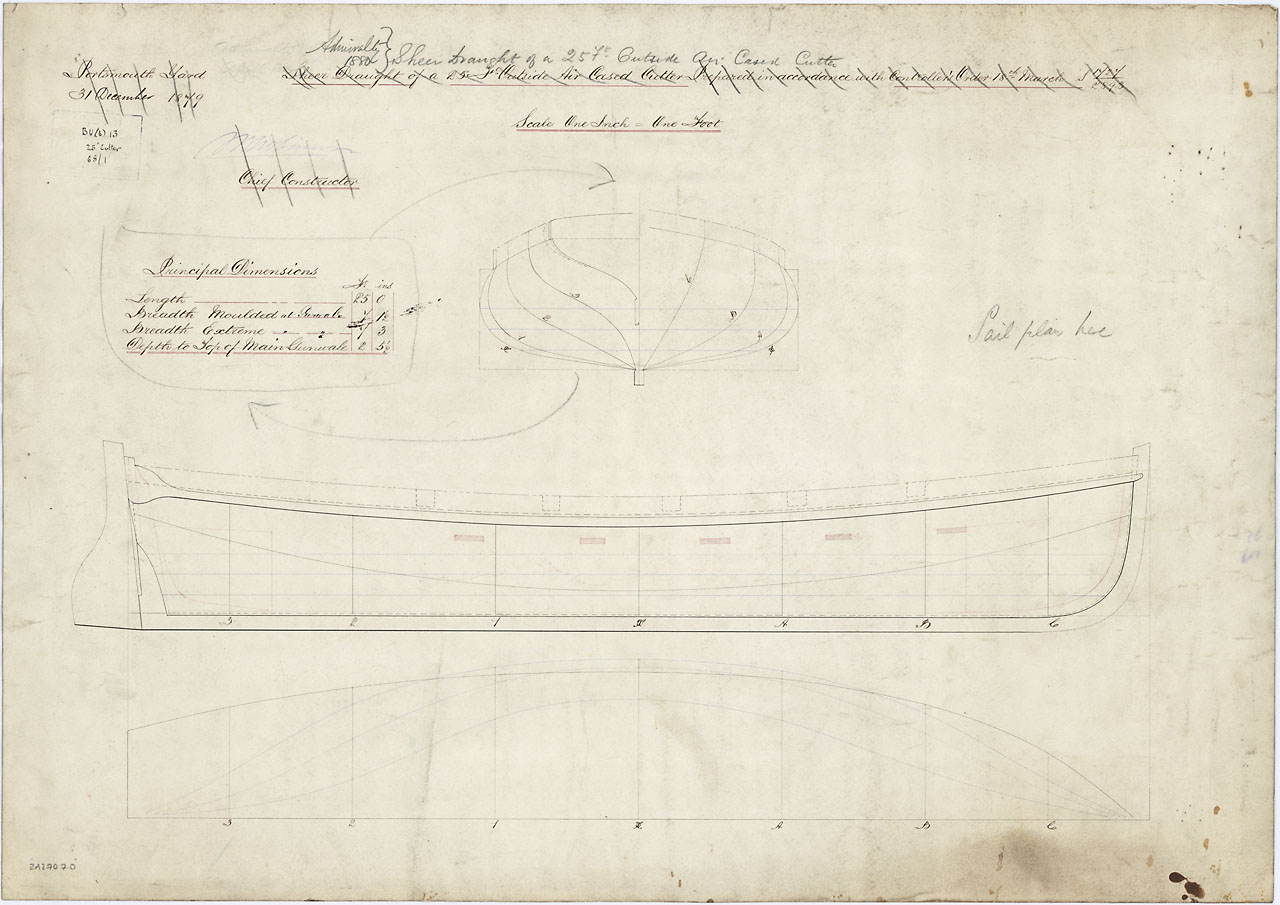 Admiralty
1880
Sheer Draught of a 25 Ft Outside Air Cased Cutter
Portsmouth Yard
31 December 1879
Sheer Draught of a 25 Ft Outside Air Cased Cutter Prepared in accordance with Controller's Order 18th March
Scale One Inch = One Foot
25' Cutter
68/1
Chief Constructor
Principal Dimensions
Ft ins
Length 25 0
Breadth Moulded at Gunwale 7 1½
Breadth Extreme " " 7 3
Depth to Top of Main Gunwale 2 5½
Sail plan here
3 2 1 A B C
3 2 1 A B C